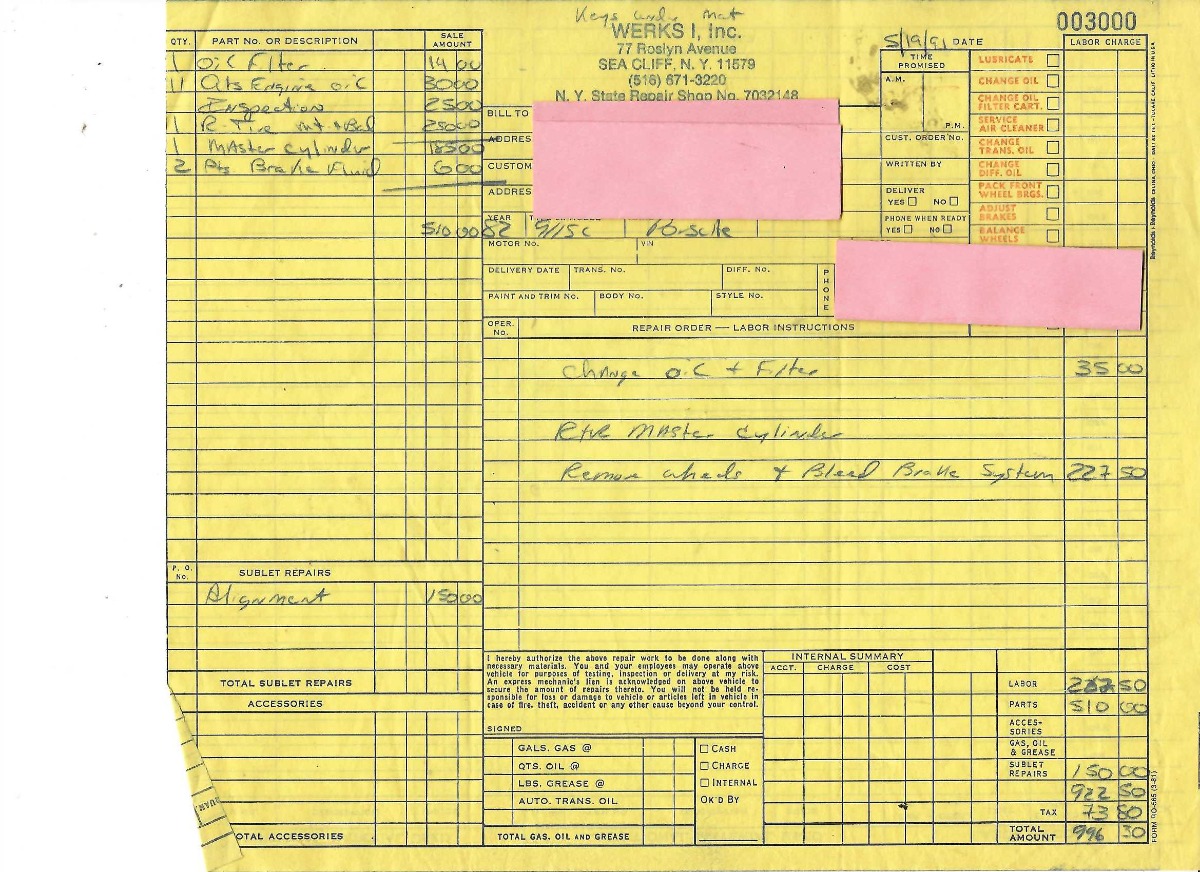 Keys under mat
003000
WERKS I, Inc.
77 Roslyn Avenue
SEA CLIFF, N. Y. 11579
(516) 671-3220
N. Y. State Repair Shop No. 7032148
QTY. PART No. OR DESCRIPTION SALE AMOUNT
1 Oil Filter 14 00
11 Qts Engine oil 30 00
Inspection 25 00
1 R. Tire mt + Bal 250 00
1 Master Cylinder 185 00
2 Pts Brake Fluid 6 00
510 00
5/19/91 DATE
TIME PROMISED
A.M.
P.M.
CUST. ORDER No.
WRITTEN BY
DELIVER
YES NO
PHONE WHEN READY
YES NO
LABOR CHARGE
LUBRICATE
CHANGE OIL
CHANGE OIL FILTER CART.
SERVICE AIR CLEANER
CHANGE TRANS. OIL
CHANGE DIFF. OIL
PACK FRONT WHEEL BRGS.
ADJUST BRAKES
BALANCE WHEELS
BILL TO
ADDRES
CUSTOM
ADDRES
YEAR
82 911SC Porsche
MOTOR No. VIN
DELIVERY DATE TRANS. No. DIFF. No.
PHONE
PAINT AND TRIM No. BODY No. STYLE No.
OPER. No. REPAIR ORDER — LABOR INSTRUCTIONS
Change oil + Filter 35 00
R+R Master Cylinder
Remove wheels + Bleed Brake System 227 50
P. O. No. SUBLET REPAIRS
Alignment 150 00
TOTAL SUBLET REPAIRS
ACCESSORIES
OTAL ACCESSORIES
I hereby authorize the above repair work to be done along with
necessary materials. You and your employees may operate above
vehicle for purposes of testing, inspection or delivery at my risk.
An express mechanic's lien is acknowledged on above vehicle to
secure the amount of repairs thereto. You will not be held re-
sponsible for loss or damage to vehicle or articles left in vehicle in
case of fire, theft, accident or any other cause beyond your control.
SIGNED
GALS. GAS @
QTS. OIL @
LBS. GREASE @
AUTO. TRANS. OIL
TOTAL GAS, OIL AND GREASE
CASH
CHARGE
INTERNAL
OK'D BY
INTERNAL SUMMARY
ACCT. CHARGE COST
LABOR 262 50
PARTS 510 00
ACCES-SORIES
GAS, OIL & GREASE
SUBLET REPAIRS 150 00
922 50
TAX 73 80
TOTAL AMOUNT 996 30
FORM RO-565 (3-81)